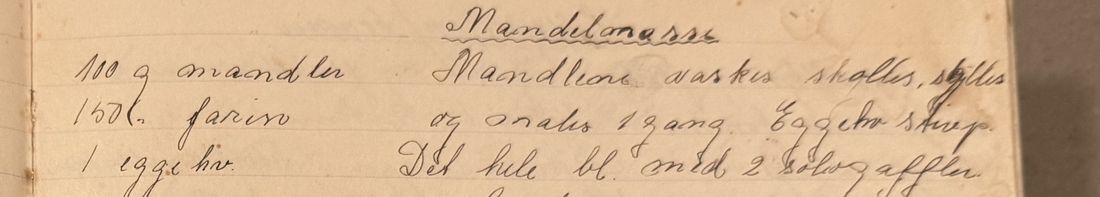 Mandelmasse
100 g mandler Mandlene vaskes skolles, skylles
150 " farin og males 1 gang. Eggehv stivp.
1 eggehv. Det hele bl. med 2 sølvgaffler